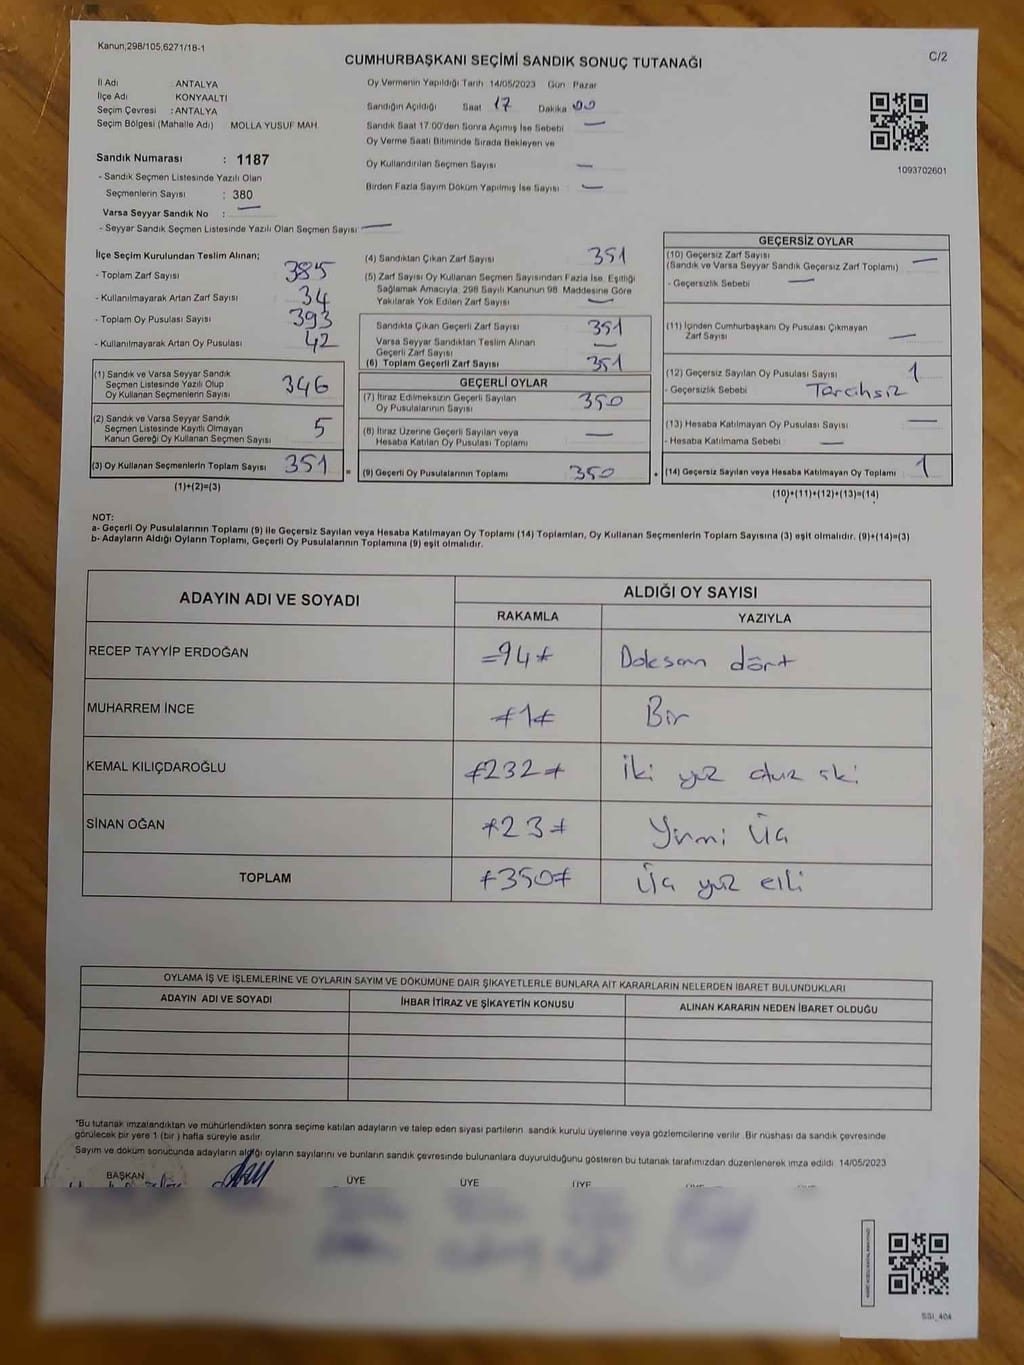 Kanun,298/105,6271/18-1
C/2
CUMHURBAŞKANI SEÇİMİ SANDIK SONUÇ TUTANAĞI
İl Adı : ANTALYA
İlçe Adı KONYAALTI
Seçim Çevresi : ANTALYA
Seçim Bölgesi (Mahalle Adı) MOLLA YUSUF MAH.
Sandık Numarası : 1187
- Sandık Seçmen Listesinde Yazılı Olan
Seçmenlerin Sayısı : 380
Varsa Seyyar Sandık No : —
- Seyyar Sandık Seçmen Listesinde Yazılı Olan Seçmen Sayısı —
Oy Vermenin Yapıldığı Tarih 14/05/2023 Gün Pazar
Sandığın Açıldığı Saat 17 Dakika 00
Sandık Saat 17:00'den Sonra Açılmış İse Sebebi —
Oy Verme Saati Bitiminde Sırada Bekleyen ve
Oy Kullandırılan Seçmen Sayısı —
Birden Fazla Sayım Döküm Yapılmış İse Sayısı —
1093702601
İlçe Seçim Kurulundan Teslim Alınan;
- Toplam Zarf Sayısı 385
- Kullanılmayarak Artan Zarf Sayısı 34
- Toplam Oy Pusulası Sayısı 393
- Kullanılmayarak Artan Oy Pusulası 42
(1) Sandık ve Varsa Seyyar Sandık
Seçmen Listesinde Yazılı Olup
Oy Kullanan Seçmenlerin Sayısı 346
(2) Sandık ve Varsa Seyyar Sandık
Seçmen Listesinde Kayıtlı Olmayan
Kanun Gereği Oy Kullanan Seçmen Sayısı 5
(3) Oy Kullanan Seçmenlerin Toplam Sayısı 351
(1)+(2)=(3)
(4) Sandıktan Çıkan Zarf Sayısı 351
(5) Zarf Sayısı Oy Kullanan Seçmen Sayısından Fazla İse, Eşitliği
Sağlamak Amacıyla; 298 Sayılı Kanunun 98. Maddesine Göre
Yakılarak Yok Edilen Zarf Sayısı —
Sandıkta Çıkan Geçerli Zarf Sayısı 351
Varsa Seyyar Sandıktan Teslim Alınan
Geçerli Zarf Sayısı —
(6) Toplam Geçerli Zarf Sayısı 351
GEÇERLİ OYLAR
(7) İtiraz Edilmeksizin Geçerli Sayılan
Oy Pusulalarının Sayısı 350
(8) İtiraz Üzerine Geçerli Sayılan veya
Hesaba Katılan Oy Pusulası Toplamı —
= (9) Geçerli Oy Pusulalarının Toplamı 350 +
GEÇERSİZ OYLAR
(10) Geçersiz Zarf Sayısı —
(Sandık ve Varsa Seyyar Sandık Geçersiz Zarf Toplamı)
- Geçersizlik Sebebi —
(11) İçinden Cumhurbaşkanı Oy Pusulası Çıkmayan
Zarf Sayısı —
(12) Geçersiz Sayılan Oy Pusulası Sayısı 1
- Geçersizlik Sebebi Tercihsiz
(13) Hesaba Katılmayan Oy Pusulası Sayısı —
- Hesaba Katılmama Sebebi —
(14) Geçersiz Sayılan veya Hesaba Katılmayan Oy Toplamı 1
(10)+(11)+(12)+(13)=(14)
NOT:
a- Geçerli Oy Pusulalarının Toplamı (9) ile Geçersiz Sayılan veya Hesaba Katılmayan Oy Toplamı (14) Toplamları, Oy Kullanan Seçmenlerin Toplam Sayısına (3) eşit olmalıdır. (9)+(14)=(3)
b- Adayların Aldığı Oyların Toplamı, Geçerli Oy Pusulalarının Toplamına (9) eşit olmalıdır.
ADAYIN ADI VE SOYADI
ALDIĞI OY SAYISI
RAKAMLA YAZIYLA
RECEP TAYYİP ERDOĞAN =94≠ Doksan dört
MUHARREM İNCE ≠1≠ Bir
KEMAL KILIÇDAROĞLU ≠232≠ İki yüz otuz iki
SİNAN OĞAN ≠23≠ Yirmi Üç
TOPLAM ≠350≠ Üç yüz elli
OYLAMA İŞ VE İŞLEMLERİNE VE OYLARIN SAYIM VE DÖKÜMÜNE DAİR ŞİKAYETLERLE BUNLARA AİT KARARLARIN NELERDEN İBARET BULUNDUKLARI
ADAYIN ADI VE SOYADI İHBAR İTİRAZ VE ŞİKAYETİN KONUSU ALINAN KARARIN NEDEN İBARET OLDUĞU
*Bu tutanak imzalandıktan ve mühürlendikten sonra seçime katılan adayların ve talep eden siyasi partilerin sandık kurulu üyelerine veya gözlemcilerine verilir. Bir nüshası da sandık çevresinde
görülecek bir yere 1 (bir) hafta süreyle asılır.
Sayım ve döküm sonucunda adayların aldığı oyların sayılarını ve bunların sandık çevresinde bulunanlara duyurulduğunu gösteren bu tutanak tarafımızdan düzenlenerek imza edildi. 14/05/2023
BAŞKAN ÜYE ÜYE ÜYE